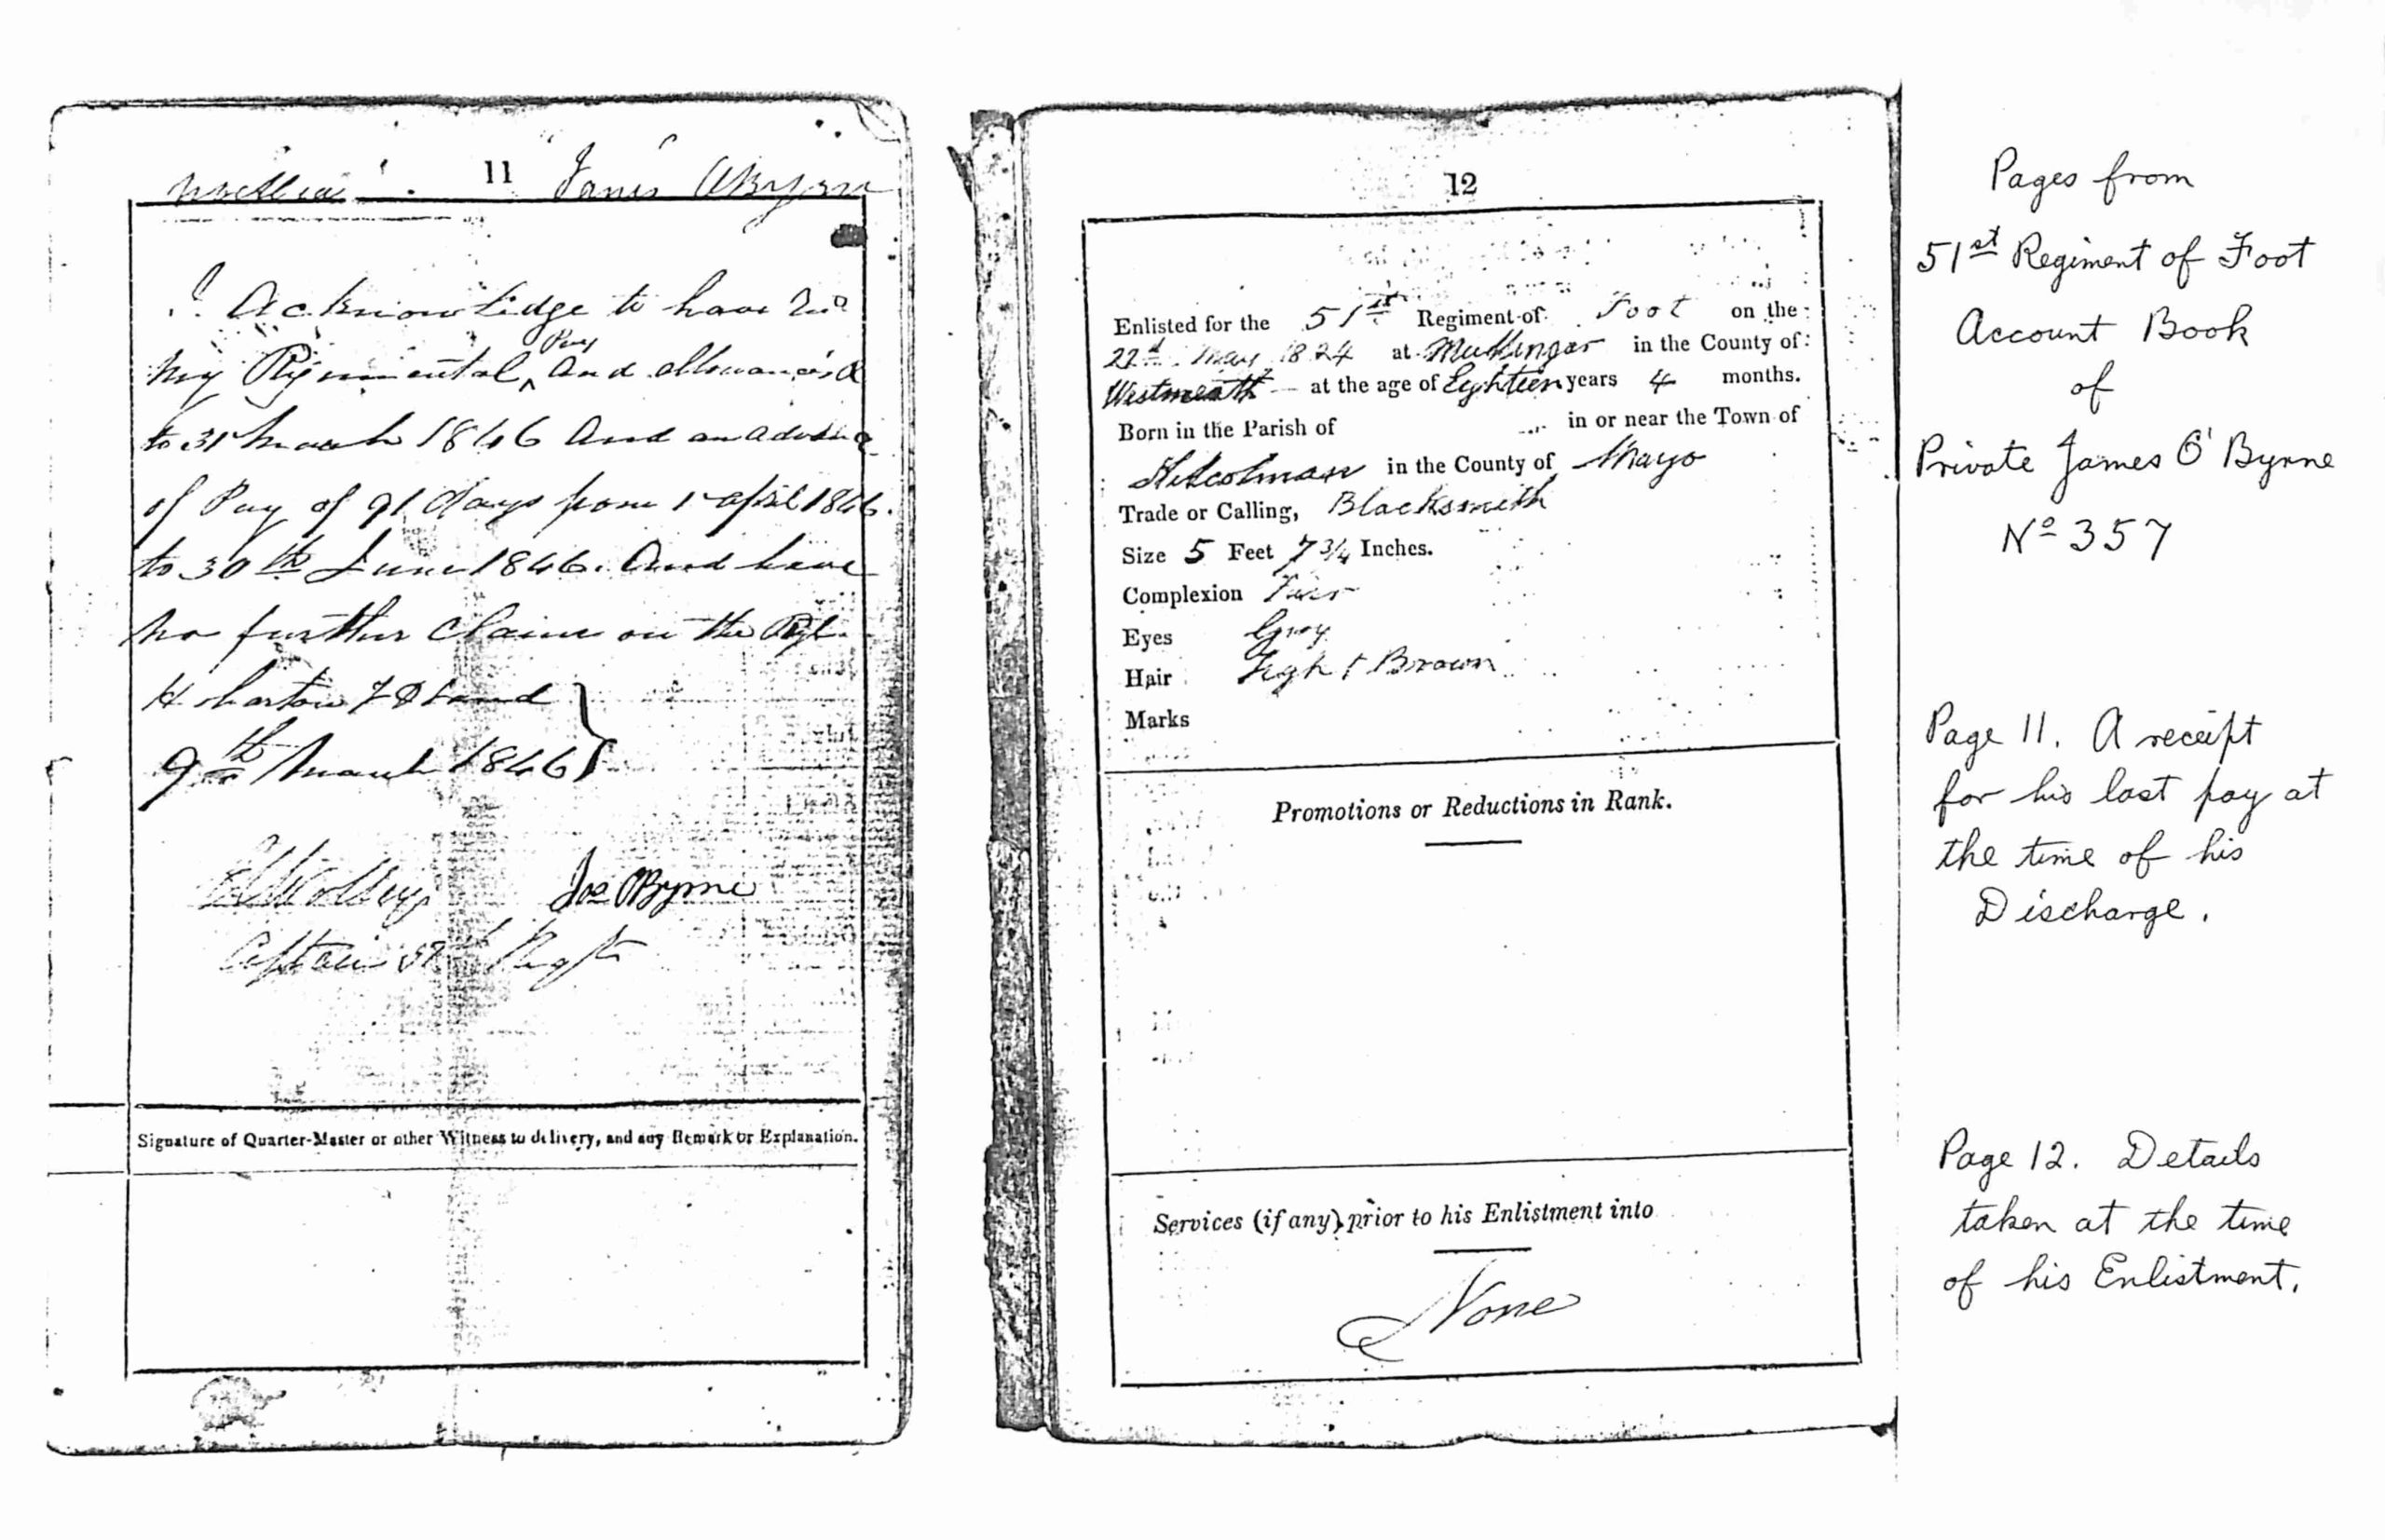 11 James OByrne
I Acknowledge to have
my Regimental Pay and allowances
to 31 March 1846 And an advance
of Pay of 91 days from 1 April 1846
to 30th June 1846. And have
no further Claim on the Regt
9th March 1846
Jas OByrne
Captain 51st Regt
Signature of Quarter-Master or other Witness to delivery, and any Remark or Explanation.
12
Enlisted for the 51st Regiment of Foot on the
22d May 1824 at Mullingar in the County of
Westmeath at the age of Eighteen years 4 months.
Born in the Parish of in or near the Town of
Kilcolman in the County of Mayo
Trade or Calling, Blacksmith
Size 5 Feet 7 3/4 Inches.
Complexion Fair
Eyes Grey
Hair Light Brown
Marks
Promotions or Reductions in Rank.
Services (if any) prior to his Enlistment into
None
Pages from
51st Regiment of Foot
Account Book
of
Private James O'Byrne
No 357
Page 11. A receipt
for his last pay at
the time of his
Discharge.
Page 12. Details
taken at the time
of his Enlistment.